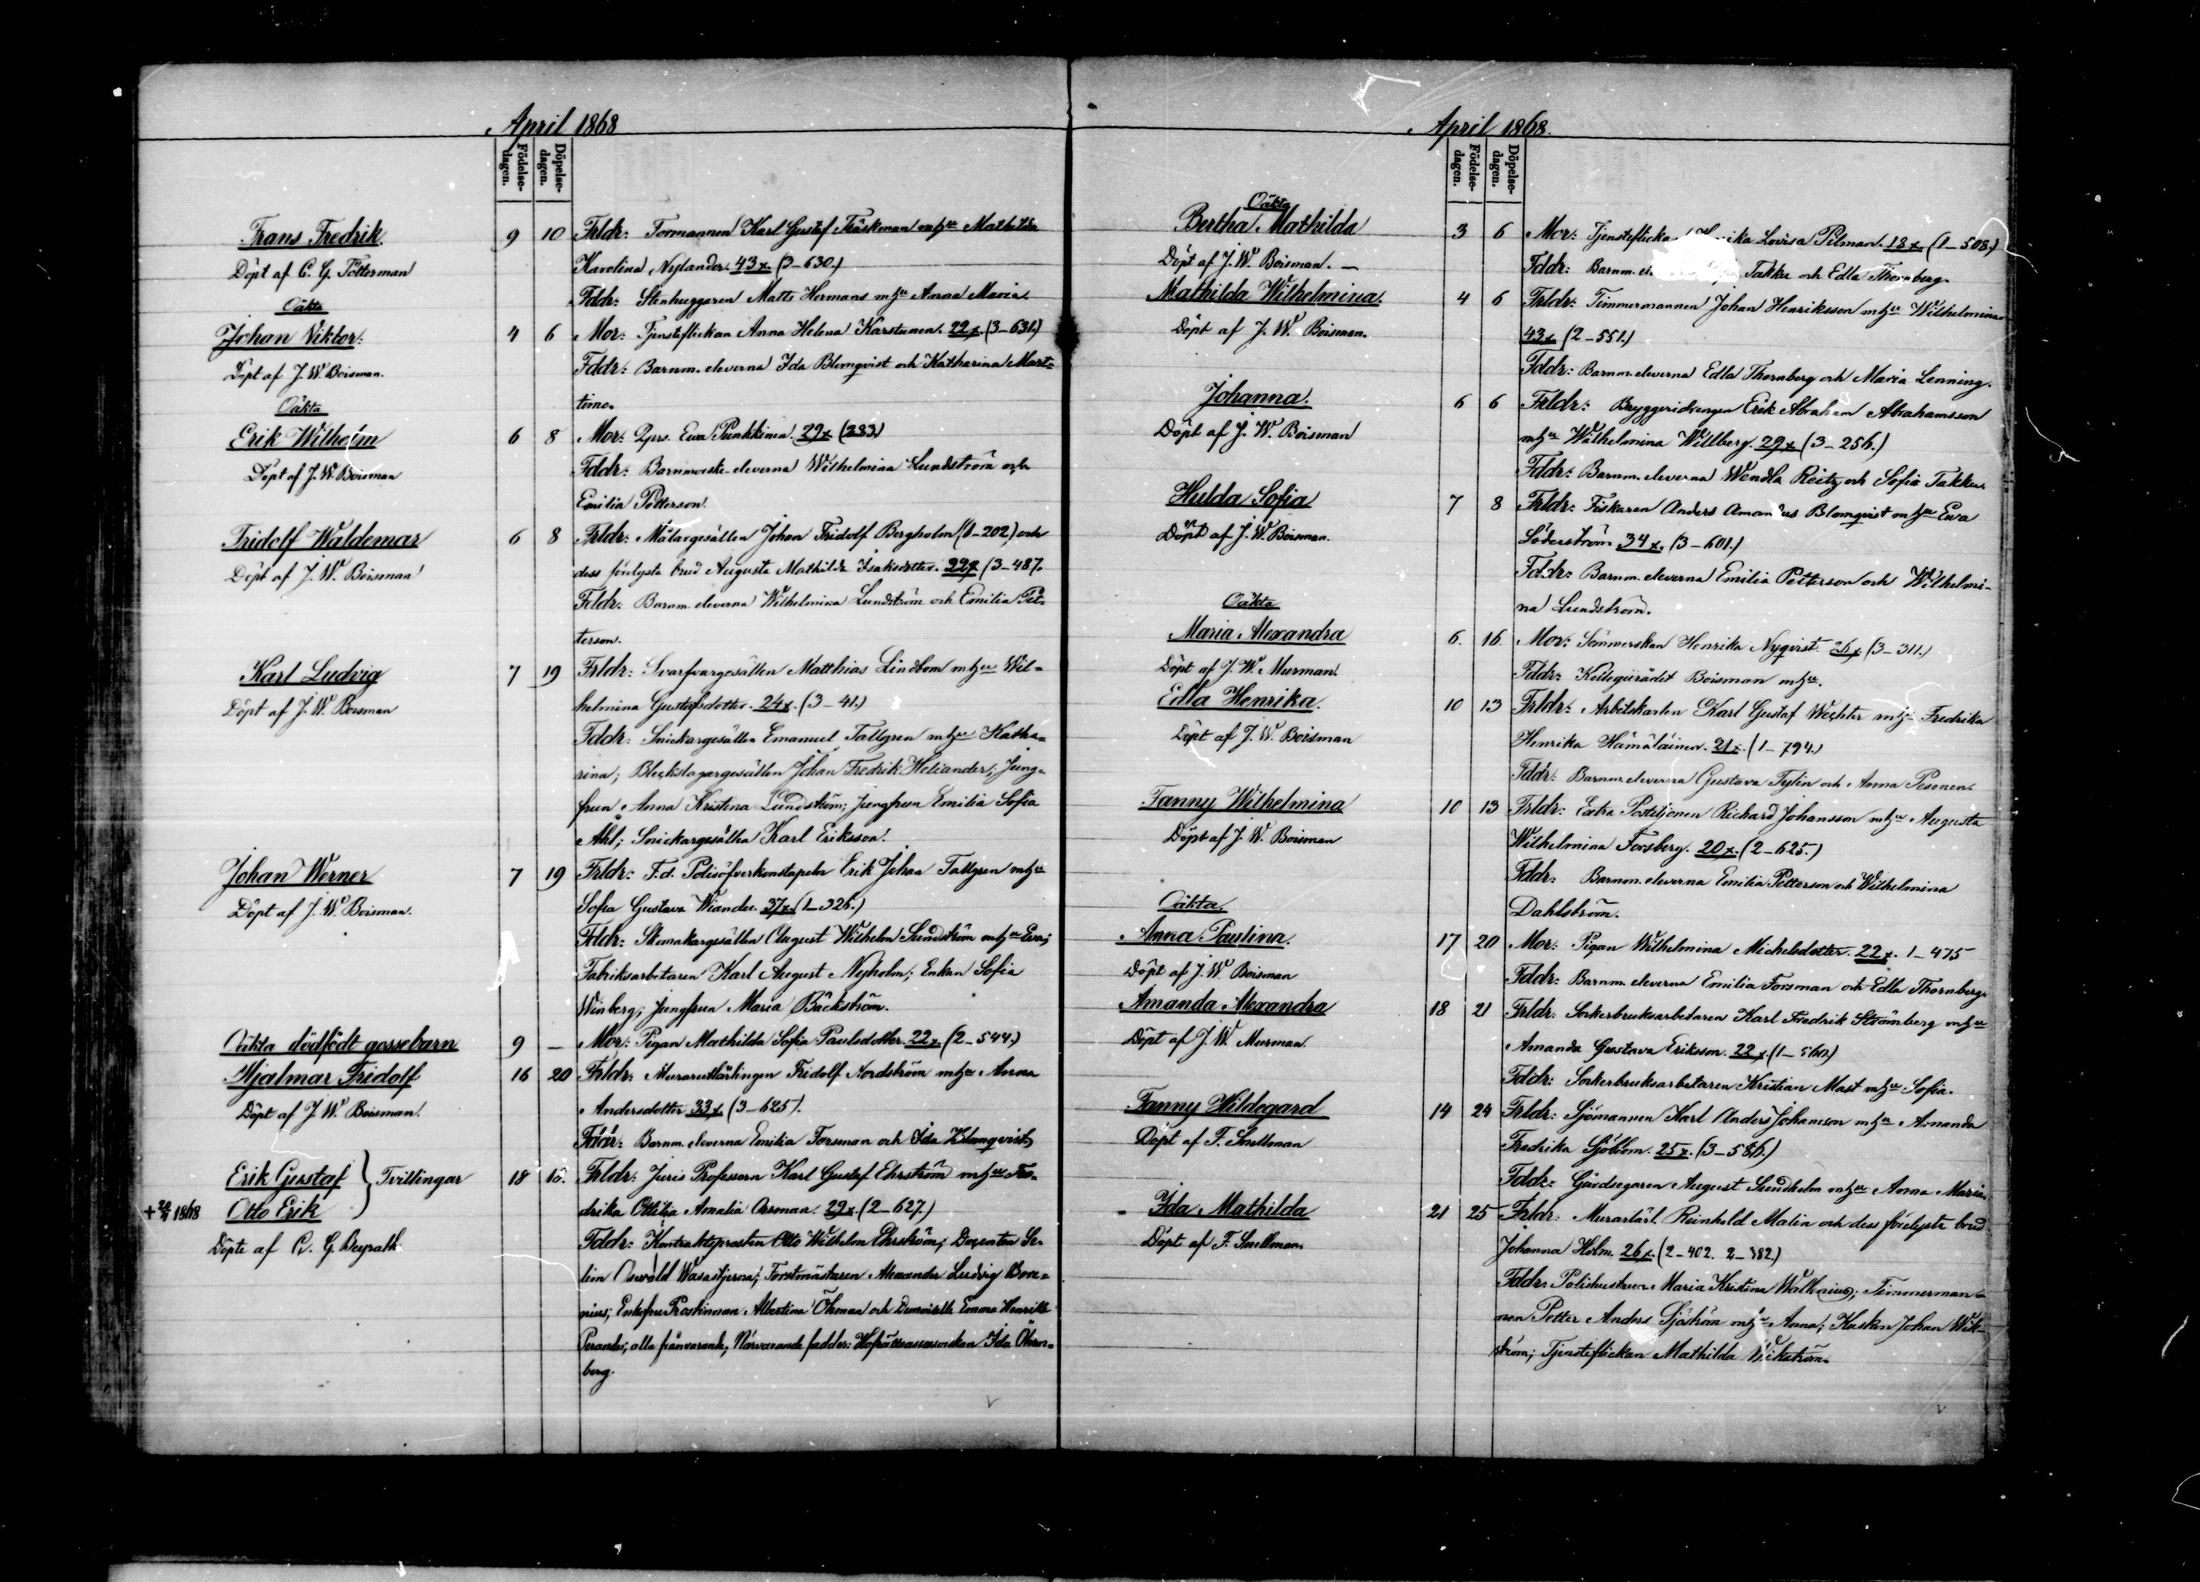 April 1868
Födelse-
dagen.
Döpelse-
dagen.
Frans Fredrik
9 10 Frldr: Formannen Karl Gustaf Träskman m hu Mathilda
Döpt af C. G. Fötterman
Karolina Nylander. 43 x. (3-630.)
Fddr: Stenhuggaren Matts Hermans m hu Anna Maria.
Oäkta
Johan Viktor.
4 6 Mor: Tjensteflickan Anna Helena Karstunen. 22 x. (3-631.)
Döpt af J. W. Boisman.
Fddr: Barnm. eleverna Ida Blomqvist och Katharina Mart-
timo.
Oäkta
Erik Wilhelm
6 8 Mor: Eva Punkkinen. 29 x (233)
Döpt af J. W. Boisman
Fddr: Barnmorske-eleverna Wilhelmina Lundström och
Emilia Petterson.
Fridolf Waldemar
6 8 Frldr: Målargesällen Johan Fridolf Bergholm (1-202) och
Döpt af J. W. Boisman
dess förelysta brud Augusta Mathilda Isaksdotter. 22 x (3-487.
Fddr: Barnm. eleverna Wilhelmina Lundström och Emilia Pet-
terson.
Karl Ludvig
7 19 Frldr: Svarfvargesällen Matthias Lindbom m hu Wil-
Döpt af J. W. Boisman
helmina Gustafsdotter. 24 x. (3-41.)
Fddr: Snickargesällen Emanuel Tallgren m hu Katha-
rina; Bleckslagargesällen Johan Fredrik Heliander; Jung-
frun Anna Kristina Lundström; Jungfrun Emilia Sofia
Ahl; Snickargesällen Karl Eriksson.
Johan Werner
7 19 Frldr: F.d. Polisöfverkonstapeln Erik Johan Tallgren m hu
Döpt af J. W. Boisman.
Sofia Gustava Wiander. 37 x. (1-326.)
Fddr: Skomakargesällen August Wilhelm Sundström m hu Eva;
Fabriksarbetaren Karl August Nyholm; Enkan Sofia
Winberg; Jungfrun Maria Bäckström.
Oäkta dödfödt gossebarn
9 — Mor: Pigan Mathilda Sofia Paulsdotter. 22 x. (2-544.)
Hjalmar Fridolf
16 20 Frldr: Murarelärlingen Fridolf Nordström m hu Anna
Döpt af J. W. Boisman.
Andersdotter 33 x. (3-625).
Fddr: Barnm. eleverna Emilia Forsman och Ida Blomqvist
Erik Gustaf } Tvillingar
18 Frldr: Juris Professorn Karl Gustaf Ehrström m hu Fre-
+ 1868 Otto Erik
drika Ottilia Amalia Ossman. 29 x. (2-627.)
Döpte af G. Beyrath
Fddr: Kontraktsprosten Otto Wilhelm Ehrström; Docenten Se-
lim Oswald Wasastjerna; Forstmästaren Alexander Ludvig Bore-
nius; Enkefru Prostinnan Albertina Öhman och Demoiselle Emma Henrika
Perander, alla frånvarande, Närvarande fadder: Hofrättsassessorskan Ida Öhrn-
berg.
April 1868.
Födelse-
dagen.
Döpelse-
dagen.
Oäkta
Bertha Mathilda
3 6 Mor: Tjensteflickan Lovisa Pilman. 18 x (1-508.)
Döpt af J. W. Boisman. —
Fddr: Barnm. Takku och Edla Thornberg.
Mathilda Wilhelmina.
4 6 Frldr: Timmermannen Johan Henriksson m hu Wilhelmina
Döpt af J. W. Boisman.
43 x. (2-551.)
Fddr: Barnm. eleverna Edla Thornberg och Maria Lenning.
Johanna.
6 6 Frldr: Bryggeridrengen Erik Abraham Abrahamsson
Döpt af J. W. Boisman
m hu Wilhelmina Willberg. 29 x (3-256.)
Fddr: Barnm. eleverna Wendla Reitz och Sofia Takku.
Hulda Sofia
7 8 Frldr: Fiskaren Anders Amandus Blomqvist m hu Eva
Döpt af J. W. Boisman.
Söderström 34 x. (3-601.)
Fddr: Barnm. eleverna Emilia Petterson och Wilhelmi-
na Lundström.
Oäkta
Maria Alexandra
6. 16 Mor: Sömmerskan Henrika Nyqvist. 26 x (3-311.)
Döpt af J. W. Murman.
Fddr: Kollegiirådet Boisman m hu.
Edla Henrika.
10 13 Frldr: Arbetskarlen Karl Gustaf Wechter m hu Fredrika
Döpt af J. W. Boisman
Henrika Hämäläinen. 21 x. (1-794.)
Fddr: Barnm. eleverna Gustava Tylin och Anna Pesonen.
Fanny Wilhelmina
10 13 Frldr: Extra Postiljonen Richard Johansson m hu Augusta
Döpt af J. W. Boisman
Wilhelmina Forsberg. 20 x. (2-625.)
Fddr: Barnm. eleverna Emilia Petterson och Wilhelmina
Dahlström.
Oäkta.
Anna Paulina.
17 20 Mor: Pigan Wilhelmina Michelsdotter. 22 x. 1-475
Döpt af J. W. Boisman
Fddr: Barnm. eleverna Emilia Forsman och Edla Thornberg.
Amanda Alexandra
18 21 Frldr: Sockerbruksarbetaren Karl Fredrik Strömberg m hu
Döpt af J. W. Murman.
Amanda Gustava Eriksson. 22 x. (1-560.)
Fddr: Sockerbruksarbetaren Kristian Mast m hu Sofia.
Fanny Hildegard
14 24 Frldr: Sjömannen Karl Anders Johansson m hu Amanda
Döpt af F. Snellman
Fredrika Sjöblom. 25 x. (3-586.)
Fddr: Gårdsegaren August Sundholm m hu Anna Maria.
Ida Mathilda
21 25 Frldr: Murarelärl. Reinhold Malin och dess förelysta brud
Döpt af F. Snellman.
Johanna Holm. 26 x. (2-402. 2-382.)
Fddr: Polishustrun Maria Kristina; Timmerman-
nen Petter Anders Sjöström m hu Anna; Kusken Johan Wik-
ström; Tjensteflickan Mathilda Wikström.